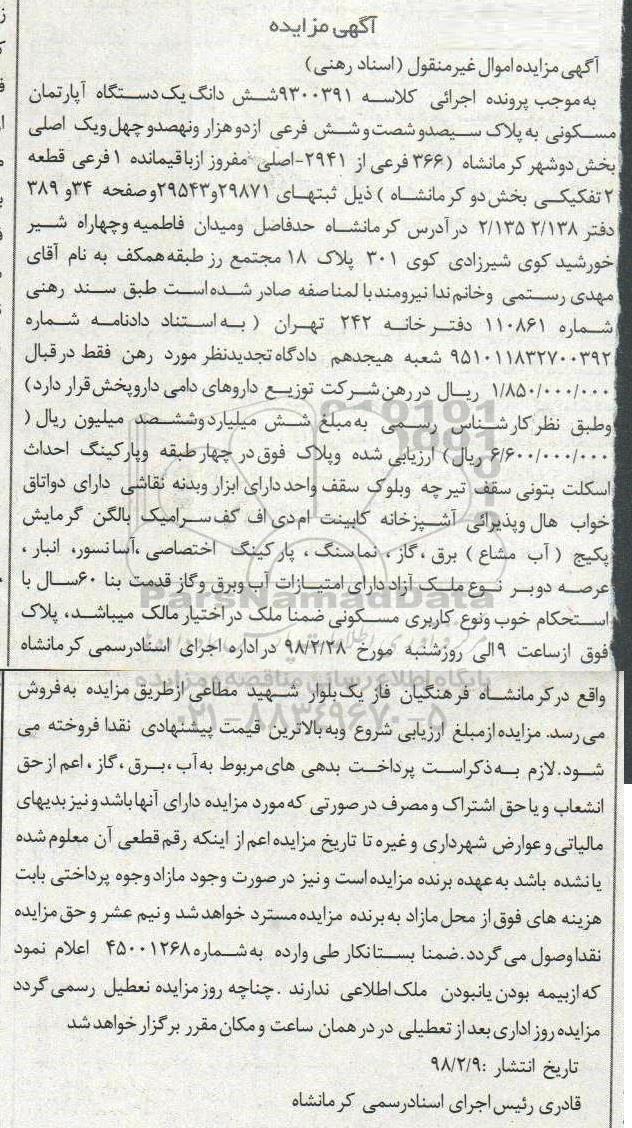 آگهی مزایده
آگهی مزایده اموال غیرمنقول (اسناد رهنی)
به موجب پرونده اجرائی کلاسه ۹۳۰۰۳۹۱شش دانگ یک دستگاه آپارتمان
مسکونی به پلاک سیصدو شصت و شش فرعی ازدو هزار و نهصدو چهل ویک اصلی
بخش دوشهر کرمانشاه (۳۶۶ فرعی از ۲۹۴۱-اصلی مفروز ازباقیمانده ۱ فرعی قطعه
۲ تفکیکی بخش دو کرمانشاه ) ذیل ثبتهای ۲۹۸۷۱و۲۹۵۴۳وصفحه ۳۴و ۳۸۹
دفتر ۲/۱۳۸ ۲/۱۳۵ در آدرس کرمانشاه حدفاصل ومیدان فاطمیه وچهاراه شیر
خورشید کوی شیرزادی کوی ۳۰۱ پلاک ۱۸ مجتمع رز طبقه همکف به نام آقای
مهدی رستمی وخانم ندا نیرومند با لمناصفه صادر شده است طبق سند رهنی
شماره ۱۱۰۸۶۱ دفتر خانه ۲۴۲ تهران ( به استناد دادنامه شماره
۹۵۱۰۱۱۸۳۲۷۰۰۳۹۲ شعبه هیجدهم دادگاه تجدیدنظر مورد رهن فقط در قبال
۱/۸۵۰/۰۰۰/۰۰۰ ریال در رهن شرکت توزیع داروهای دامی داروپخش قرار دارد)
وطبق نظر کارشناس رسمی به مبلغ شش میلیارد وششصد میلیون ریال (
۶/۶۰۰/۰۰۰/۰۰۰ ریال) ارزیابی شده وپلاک فوق در چهار طبقه وپارکینگ احداث
اسکلت بتونی سقف تیرچه وبلوک سقف واحد دارای ابزار وبدنه نقاشی دارای دواتاق
خواب هال وپذیرائی آشپزخانه کابینت ام دی اف کف سرامیک بالگن گرمایش
پکیج ( آب مشاع ) برق ،گاز ، نماسنگ ، پارکینگ اختصاصی ،آسانسور، انبار ،
عرصه دوبر نوع ملک آزاد دارای امتیازات آب وبرق و گاز قدمت بنا ۶۰سال با
استحکام خوب ونوع کاربری مسکونی ضمنا ملک در اختیار مالک میباشد، پلاک
فوق ازساعت ۹الی روزشنبه مورخ ۹۸/۲/۲۸ در اداره اجرای اسنادرسمی کرمانشاه
واقع درکرمانشاه فرهنگیان فاز یک بلوار شهید مطاعی ازطریق مزایده به فروش
می رسد. مزایده از مبلغ ارزیابی شروع وبه بالاترین قیمت پیشنهادی نقدا فروخته می
شود.لازم به ذکر است پرداخت بدهی های مربوط به آب ،برق ، گاز ، اعم از حق
انشعاب و یا حق اشتراک و مصرف در صورتی که مورد مزایده دارای آنها باشد و نیز بدیهای
مالیاتی و عوارض شهرداری و غیره تا تاریخ مزایده اعم از اینکه رقم قطعی آن معلوم شده
یا نشده باشد به عهده برنده مزایده است و نیز در صورت وجود مازاد وجوه پرداختی بابت
هزینه های فوق از محل مازاد به برنده مزایده مسترد خواهد شد و نیم عشر و حق مزایده
نقدا وصول می گردد.ضمنا بستانکار طی وارده به شماره ۴۵۰۰۱۲۶۸ اعلام نمود
که از بیمه بودن یانبودن ملک اطلاعی ندارند .چناچه روز مزایده نعطیل رسمی گردد
مزایده روز اداری بعد از تعطیلی در در همان ساعت و مکان مقرر برگزار خواهد شد
تاریخ انتشار :۹۸/۲/۹
قادری رئیس اجرای اسنادرسمی کرمانشاه
ParsNamadData
پایگاه اطلاع رسانی مناقصه و مزایده
۰۲۱-۸۸۳۴۹۶۷۰-۵